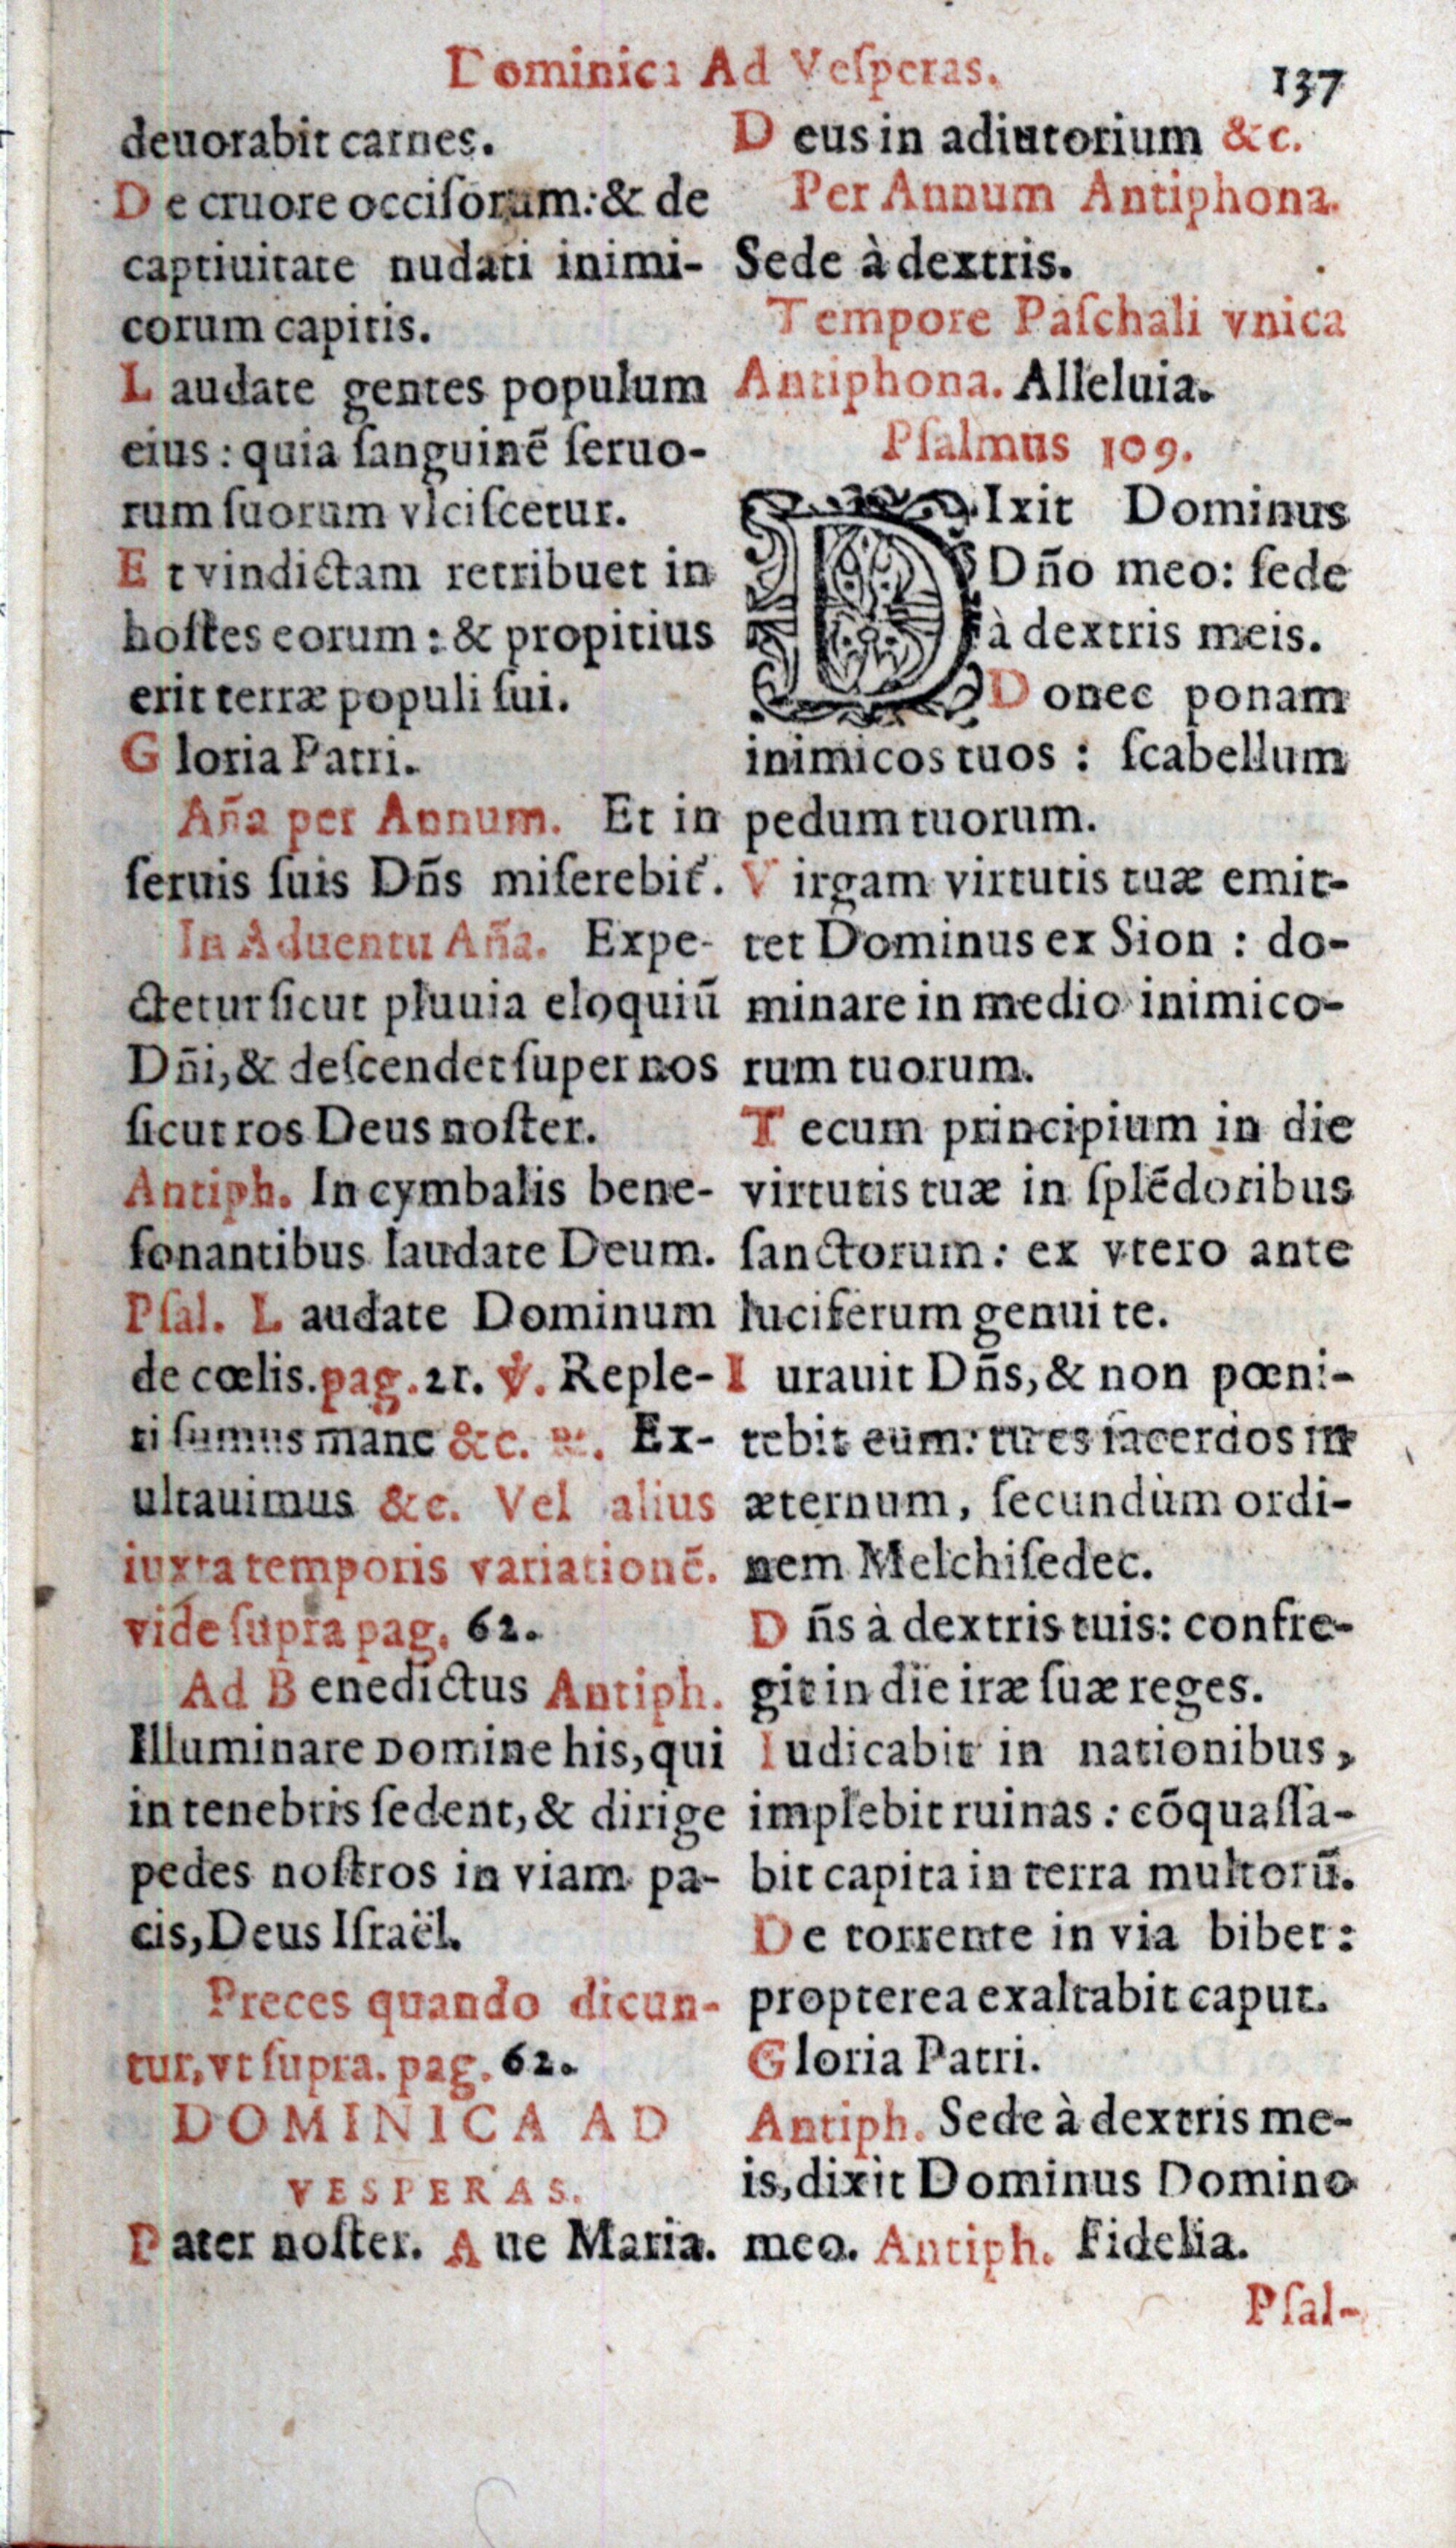 Dominica Ad Veſperas.
137
deuorabit carnes.
De cruore occiſorum: & de
captiuitate nudati inimi-
corum capitis.
Laudate gentes populum
eius: quia ſanguinē ſeruo-
rum ſuorum vlciſcetur.
Et vindictam retribuet in
hoſtes eorum: & propitius
erit terræ populi ſui.
Gloria Patri.
Aña per Annum. Et in
ſeruis ſuis Dñs miſerebit̃.
In Aduentu Aña. Expe-
ctetur ſicut pluuia eloquiū
Dñi, & deſcendet ſuper nos
ſicut ros Deus noſter.
Antiph. In cymbalis bene-
ſonantibus laudate Deum.
Pſal. Laudate Dominum
de cœlis. pag. 21. ℣. Reple-
ti ſumus mane &c. ℟. Ex-
ultauimus &c. Vel alius
iuxta temporis variationē.
vide ſupra pag. 62.
Ad Benedictus Antiph.
Illuminare Domine his, qui
in tenebris ſedent, & dirige
pedes noſtros in viam pa-
cis, Deus Iſraël.
Preces quando dicun-
tur, vt ſupra. pag. 62.
DOMINICA AD
VESPERAS.
Pater noſter. Aue Maria.
Deus in adiutorium &c.
Per Annum Antiphona.
Sede à dextris.
Tempore Paſchali vnica
Antiphona. Alleluia.
Pſalmus 109.
DIxit Dominus
Dño meo: ſede
à dextris meis.
Donec ponam
inimicos tuos: ſcabellum
pedum tuorum.
Virgam virtutis tuæ emit-
tet Dominus ex Sion: do-
minare in medio inimico-
rum tuorum.
Tecum principium in die
virtutis tuæ in ſplēdoribus
ſanctorum: ex vtero ante
luciferum genui te.
Iurauit Dñs, & non pœni-
tebit eum: tu es ſacerdos in
æternum, ſecundùm ordi-
nem Melchiſedec.
Dñs à dextris tuis: confre-
git in die iræ ſuæ reges.
Iudicabit in nationibus,
implebit ruinas: cōquaſſa-
bit capita in terra multorū.
De torrente in via bibet:
propterea exaltabit caput.
Gloria Patri.
Antiph. Sede à dextris me-
is, dixit Dominus Domino
meo. Antiph. Fidelia.
Pſal-